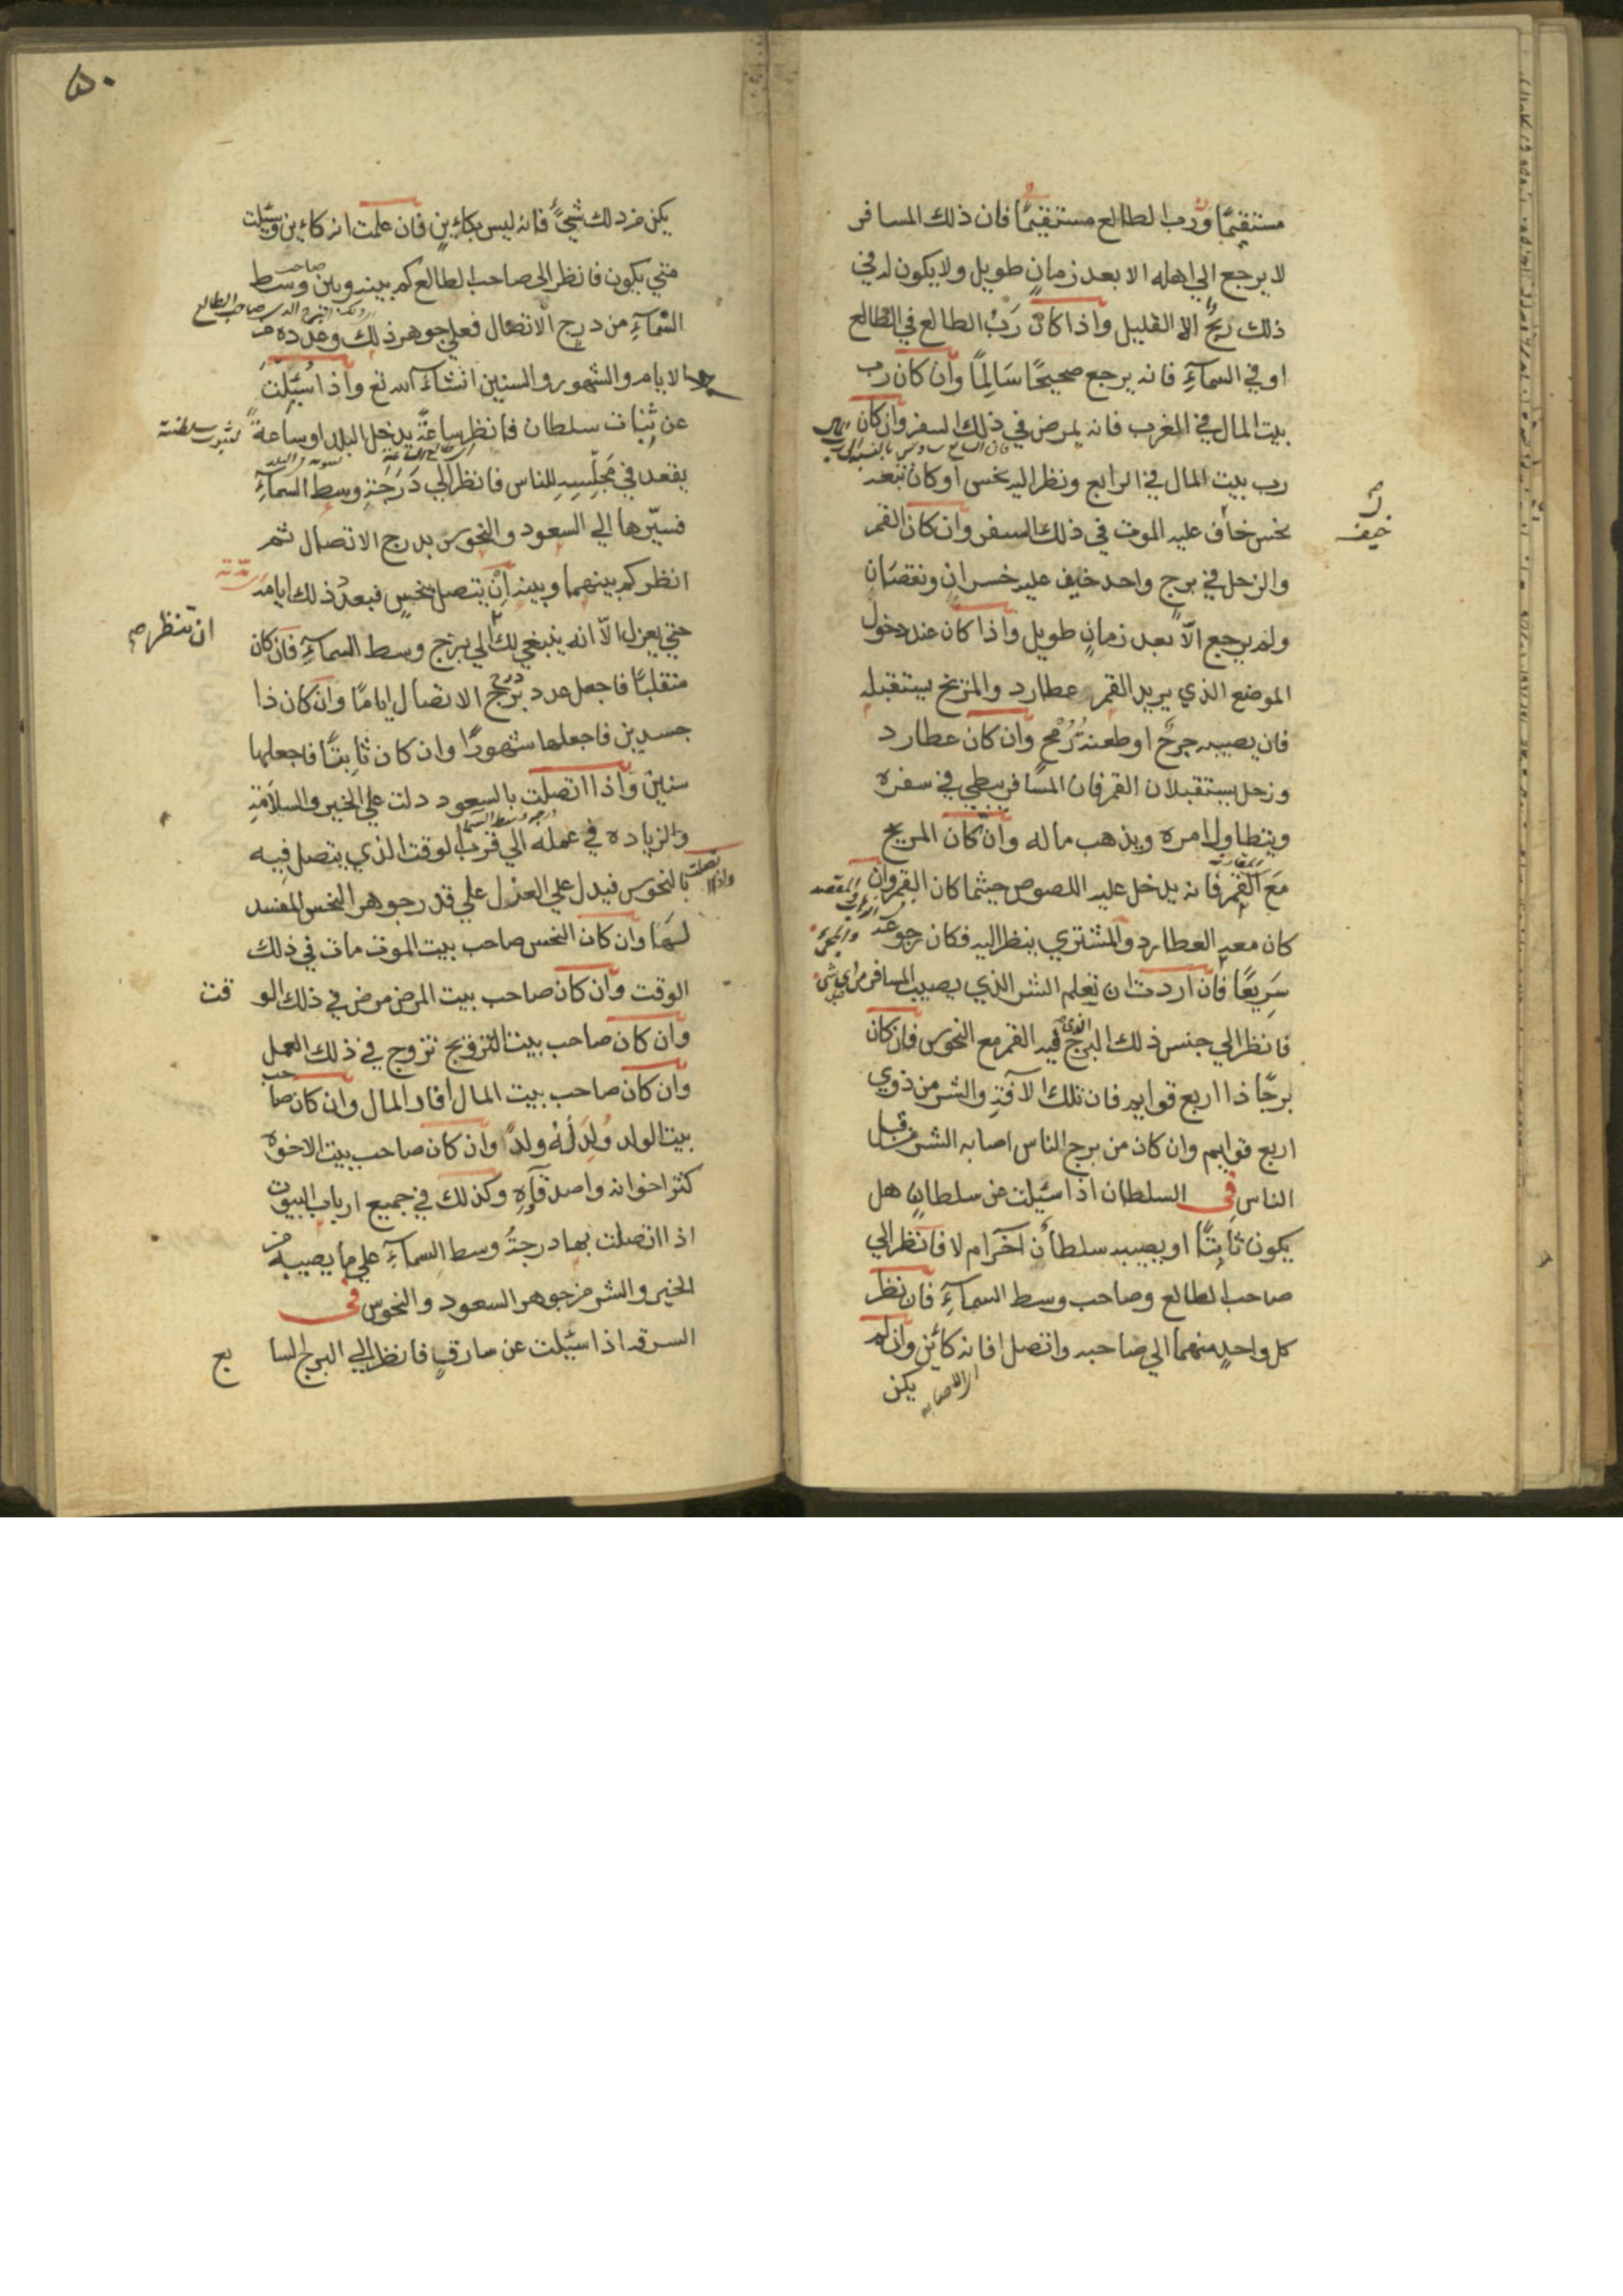 مستقيمًا ورب الطالع مستقيمًا فان ذلك المسافر
لا يرجع الي اهله الا بعد زمانٍ طويل ولا يكون له في
ذلك ربحٌ الا القليل واذا كان رَبُ الطالع في الطالع
او في السمآءِ فانه يرجع صحيحًا سَالِمًا وان كان رب
بيت المال في المغرب فانه يمرض في ذلك السفر وان كان
رب بيت المال في الرابع ونظر اليه نحس او كان تبعه
نحس خاف عليه الموت في ذلك السفر وان كان القمر
خيف
والزحل في برج واحد خيف عليه خسران ونقصَان
ولم يرجع الّا بعد زمانٍ طويل واذا كان عند دخول
الموضع الذي يريد القمر عطارد والمريخ يستقبله
فان يصيبه جرحٌ او طعنة رُمْحٍ وان كان عطارد
وزحل يستقبلان القمر فان المسافر يبطي في سفره
ويتطاول امره ويذهب ماله وان كان المريخ
مَع القمر فانه يدخل عليه اللصوص حيثما كان القمر وان
كان معه العطارد والمشتري ينظر اليه فكان رجوعه
سَرِيعًا فان اردت ان تعلم الشر الذي يصيب المسافر من اي شي
فانظر الي جنس ذلك البرج الذي فيه القمر مع النحوس فان كان
برجًا ذا اربع قوايم فان تلك الآفة والشر من ذوي
اربع قوايم وان كان من برج الناس اصابه الشر من قبل
الناس في السلطان اذا سُيِلت عن سلطانٍ هل
يكون ثابتًا او يصيبه سلطان آخر ام لا فانظر الي
صاحب الطالع وصاحب وسط السمآءِ فان نظر
كل واحدٍ منهما الي صاحبه واتصل افانه كائن وان لم
يكن
٥٠
يكن من ذلك شيٌ فانه ليس بكاينٍ فان علمت انه كاين وسئلت
متي يكون فانظر الي صاحب الطالع كم بينه وبين صاحب وسط
السمآءِ من درج الاتصال فعلي جوهر ذلك وعدده
الايام والشهور والسنين انشآء الله تع واذا سُئِلتَ
عن ثبات سلطان فانظر ساعةً يدخل البلد او ساعةً
لثبوت سلطنته
يقعد في مَجلِسِهِ للناس فانظر الي دَرَجَةِ وسط السمآءِ
فسيّرها الي السعود والنحوس بدرج الاتصال ثم
انظر كم بينهما وبينه ان يتصل بنحسٍ فبعدد ذلك ايامه
حتي يعزل الّا انه ينبغي لك الي برج وسط السمآءِ فان كان
ان تنظر صح
منقلبًا فاجعل عدد درج الاتصال ايامًا وان كان ذا
جسدين فاجعلها شهورًا وان كان ثابتًا فاجعلها
سنين واذا اتصلت بالسعود دلت علي الخير والسلامَةِ
درجة وسط السما
والزياده في عمله الي قرب الوقت الذي يتصل فِيه
واذا اتصلت
بالنحوس فيدل علي العزل علي قدر جوهر النحس المفسد
لهَا وان كان النحس صاحب بيت الموت مات في ذلك
الوقت وان كان صاحب بيت المرض مرض في ذلك الوقت
وان كان صاحب بيت التزويج تزوج في ذلك العمل
وان كان صاحب بيت المال افاد المال وان كان صاحب
بيت الولد وُلِدَ لُهُ ولدًا وان كان صاحب بيت الاخوة
كثر اخوانه واصدقآوه وكذلك في جميع ارباب البيوت
اذا اتصلت بها درجةُ وسط السمآءِ علي ما يصيبه من
الخير والشر من جوهر السعود والنحوس في
السرقه اذا سئيلت عن سارقٍ فانظر الي البرج السابع